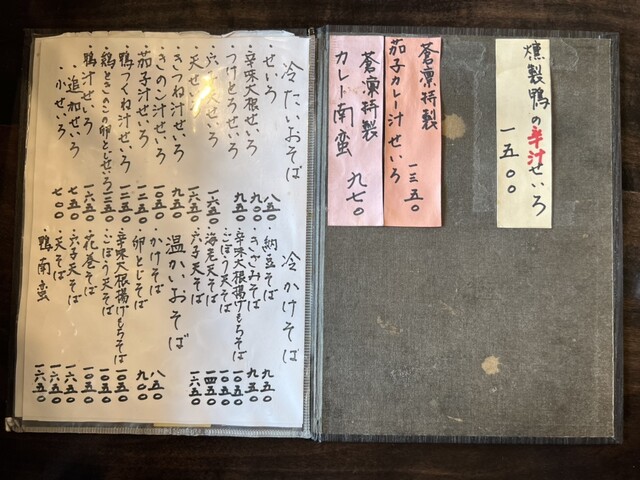 燻製鴨の辛汁せいろ
一五〇〇
蒼凛特製
茄子カレー汁せいろ
一三五〇
蒼凛特製
カレー南蛮 九七〇
冷たいおそば
・せいろ 八五〇
・辛味大根せいろ 九〇〇
・つけとろせいろ 九五〇
天せいろ 一六五〇
・きつね汁せいろ 九五〇
・きのこ汁せいろ 一〇五〇
・茄子汁せいろ 一〇五〇
・鴨つくね汁せいろ
・鶏ときのこの卵とじせいろ
・鴨汁せいろ
・追加せいろ 七五〇
・小せいろ 七〇〇
冷かけそば
・納豆そば 九五〇
・きざみそば 九五〇
・辛味大根揚げもちそば 一〇五〇
・ごぼう天そば 一〇五〇
・海老天そば 一四五〇
・六子天そば 一六五〇
温かいおそば
・かけそば 八五〇
・卵とじそば 九〇〇
・辛味大根揚げもちそば 一〇五〇
・ごぼう天そば 一〇五〇
・花巻そば 一〇五〇
・六子天そば 一六五〇
・天そば 一六五〇
・鴨南蛮 一六五〇